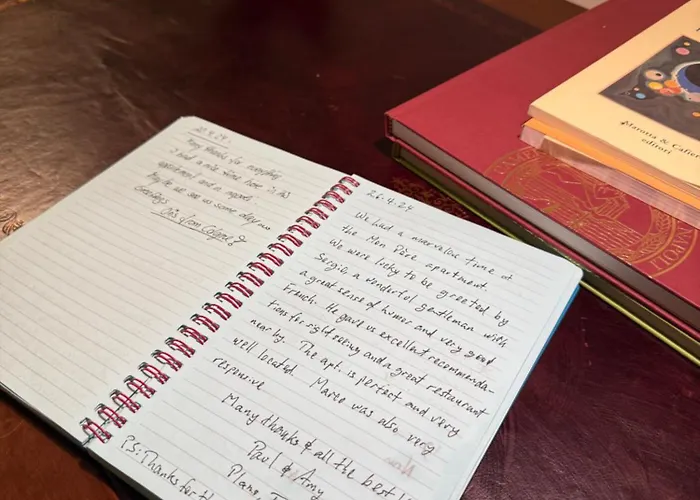 Many thanks for everything
I had a nice time in this
apartment and a
Maybe we see us some day
Greetings
from Cologne
26.4.24
We had a marvelous time at
the Mon Père apartment.
We were lucky to be greeted by
Sergio, a wonderful gentleman with
a great sense of humor and very good
French. He gave us excellent recommenda-
tions for sight seeing and a great restaurant
nearby. The apt. is perfect and very
well located. Marte was also very
responsive
Many thanks & all the best
Paul & Amy
Plano,
P.S: Thanks for th
Maretta & Cafier
editori